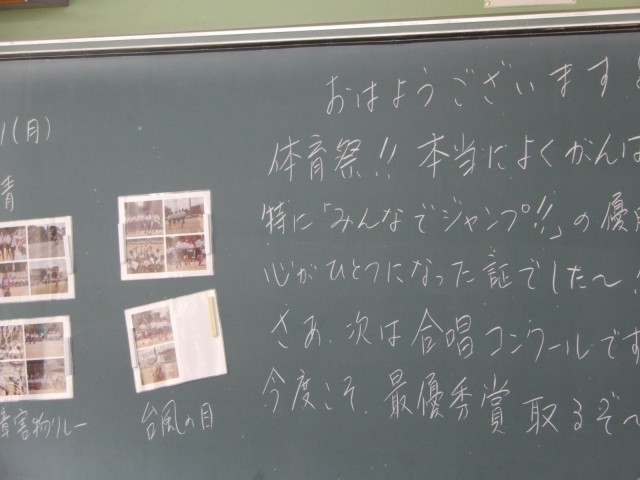 おはようございます
体育祭!! 本当によくがんば
特に「みんなでジャンプ!!」の優
心がひとつになった証でした〜
さあ、次は合唱コンクールです
今度こそ、最優秀賞取るぞ〜
1(月)
青
障害物リレー
台風の目